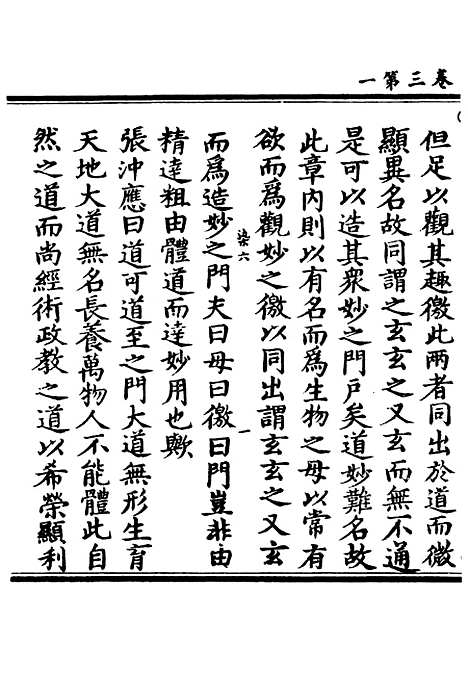 卷三第一
但足以觀其趣徼此兩者同出於道而微
顯異名故同謂之玄玄之又玄而無不通
是可以造其衆妙之門戶矣道妙難名故
此章內則以有名而爲生物之母以常有
欲而爲觀妙之徼以同出謂玄玄之又玄
染六
一
而爲造妙之門夫曰母曰徼曰門豈非由
精達粗由體道而達妙用也歟
張沖應曰道可道至之門大道無形生育
天地大道無名長養萬物人不能體此自
然之道而尚經術政教之道以希榮顯利